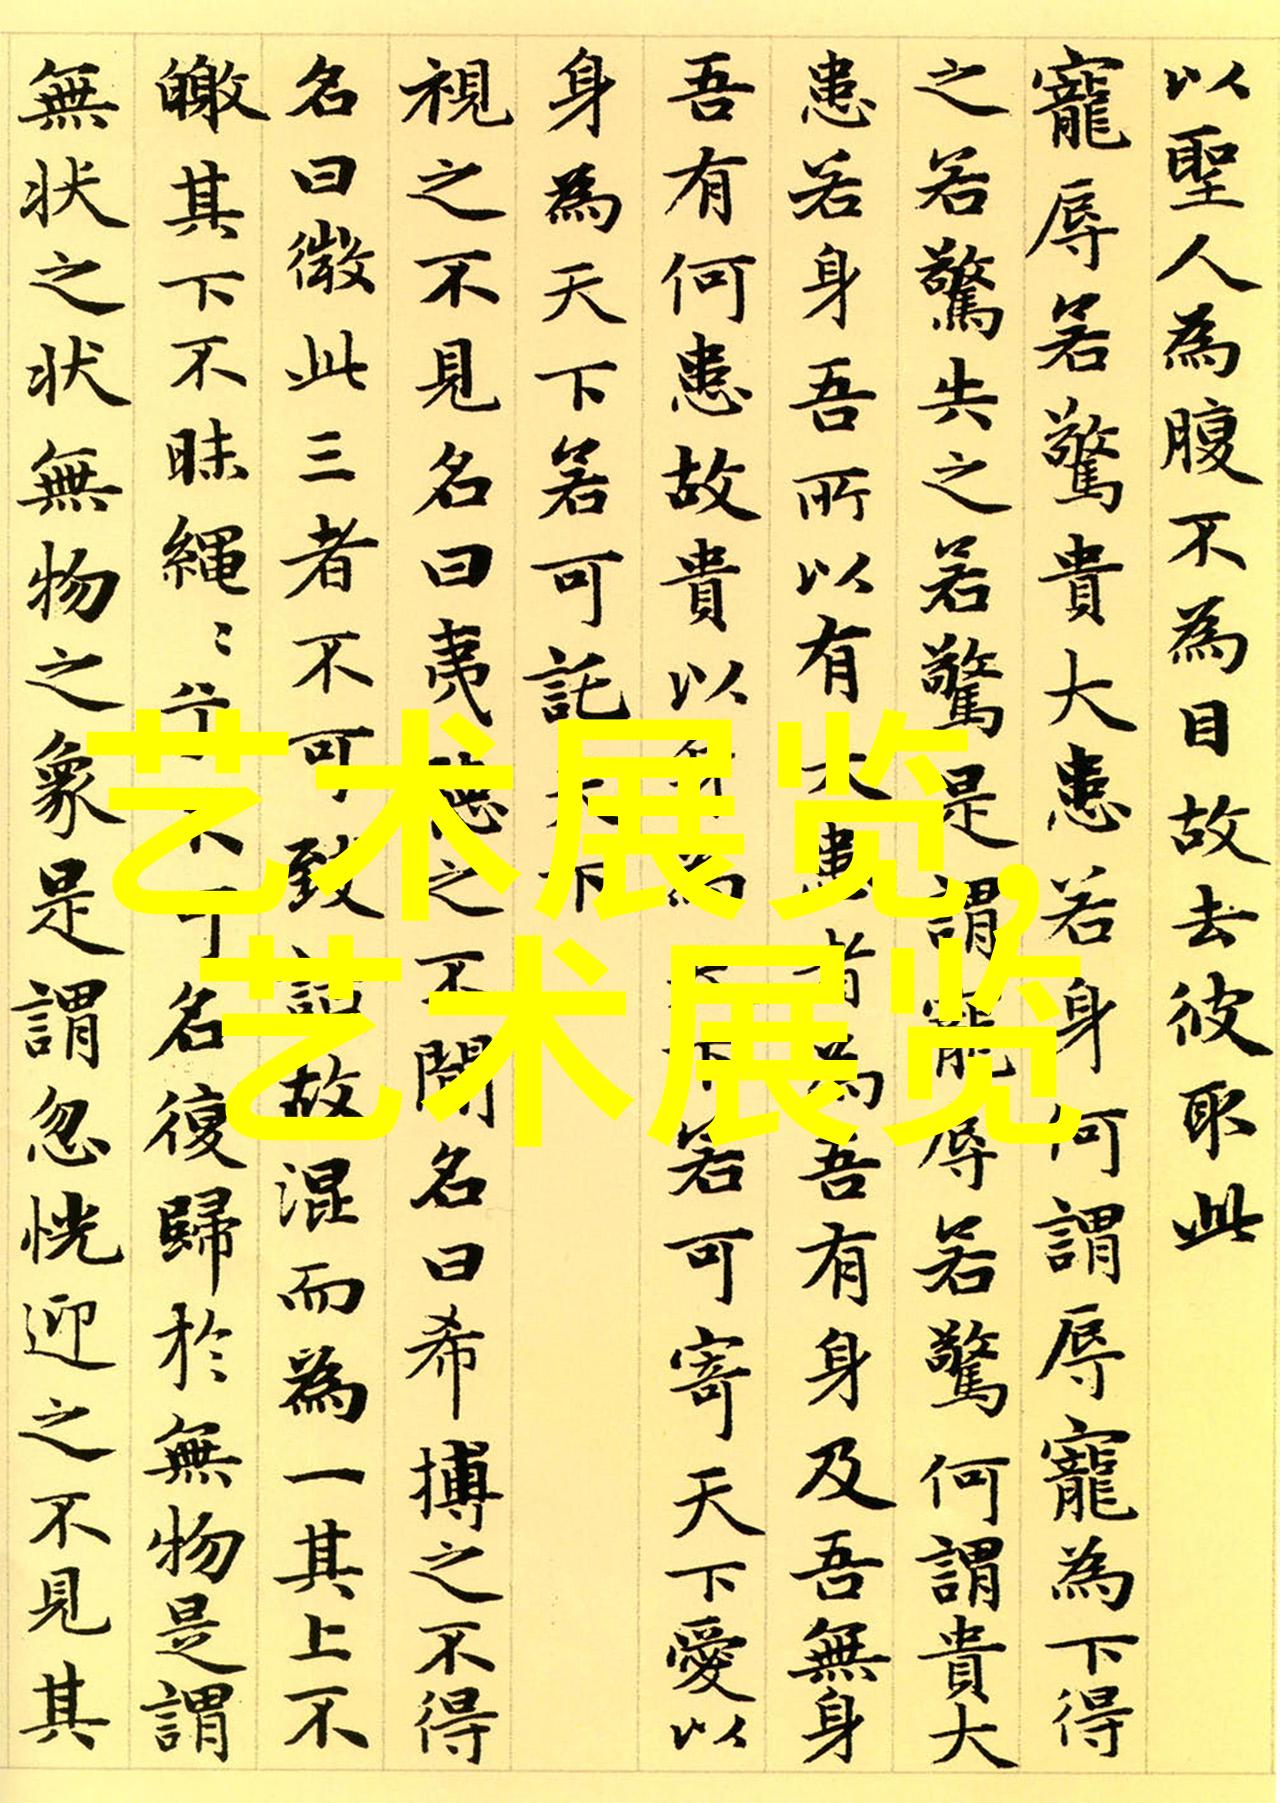 以聖人為腹不為目故去彼取此
寵辱若驚貴大患若身何謂辱寵為下得
之若驚失之若驚是謂寵辱若驚何謂貴大
患若身吾所以有大患者為吾有身及吾無身
吾有何患故貴以身為天下若可寄天下愛以
身為天下若可託天下
視之不見名曰夷聽之不聞名曰希搏之不得
名曰微此三者不可致詰故混而為一其上不
皦其下不昧繩〻兮不可名復歸於無物是謂
無状之状無物之象是謂忽恍迎之不見其
艺术展览,
艺术展览